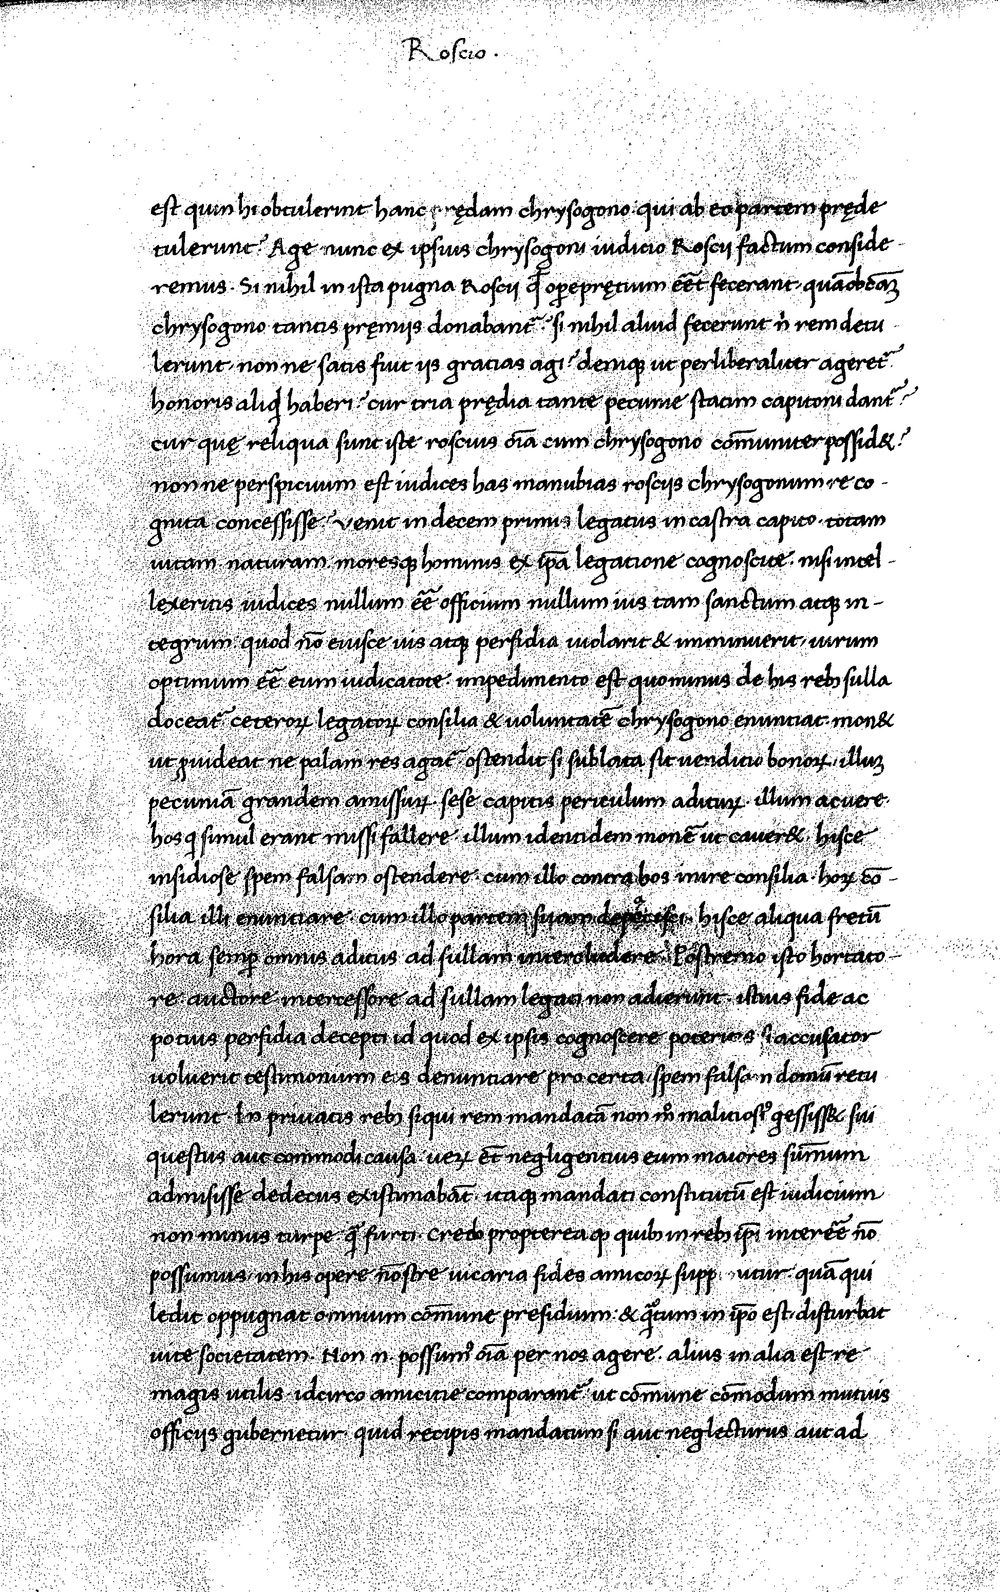 Roscio.
est quin hi obtulerint hanc prędam chrysogono qui ab eo partem pręde
tulerunt? Age nunc ex ipsius chrysogoni iudicio Roscii factum conside-
remus. Si nihil in ista pugna Roscij qđ operęprętium eēt fecerant, quāobcāꝫ
chrysogono tantis pręmijs donabant᷑? si nihil aliud fecerunt n̄ rem detu-
lerunt, non ne satis fuit ijs gracias agi? deniqꝫ ut perliberaliter ageret᷑
honoris aliqđ haberi? cur tria prędia tante pecunie statim capitoni dant᷑?
cur quę reliqua sunt iste roscius oīa cum chrysogono cōmuniter possid&?
non ne perspicuum est iudices has manubias rosciis chrysogonum re co-
gnita concessisse? Venit in decem primis legatus in castra capito. totam
uitam naturam moresqꝫ hominis ex ip̄a legatione cognoscite. nisi intel-
lexeritis iudices nullum eē officium nullum ius tam sanctum atqꝫ in-
tegrum quod nō eiusce uis atqꝫ perfidia uiolarit & imminuerit, uirum
optimum eē eum iudicatote. impedimento est quominus de his rebꝫ sulla
doceat᷑ ceteroꝝ legatoꝝ consilia & uoluntatē chrysogono enuntiat. mon&
ut ꝓuideat ne palam res agat᷑. ostendit si sublata sit uenditio bonoꝝ, illuꝫ
pecuniā grandem amissuꝝ. sese capitis periculum adituꝝ. illum acuere.
hos q̄ simul erant missi fallere. illum identidem monē ut cauer&. hisce
insidiose spem falsam ostendere. cum illo contra hos inire consilia. hoꝝ cō-
silia illi enuntiare. cum illo partem suam depacisci. hisce aliqua fretū
hora semꝑ omnis aditus ad sullam intercludere. Postremo isto hortato-
re auctore intercessore ad sullam legati non adierunt. istius fide ac
potius perfidia decepti id quod ex ipsis cognoscere poteritis si accusator
uoluerit testimonium eis denuntiare pro certa spem falsam domū retu-
lerunt. In priuatis rebꝫ siqui rem mandatā non mō malitiosiꝰ gessiss& sui
questus aut commodi causa. ueꝝ ēt negligentius eum maiores sūmum
admisisse dedecus existimabāt. itaqꝫ mandati constitutū est iudicium
non minus turpe q̄ furti. Credo propterea qꝫ quibꝫ in rebꝫ ip̄i intereē nō
possumus, in his opere nostre uicaria fides amicoꝝ supp utur. quā qui
ledit oppugnat omnium cōmune presidium. & q̄tum in ip̄o est, disturbat
uite societatem. Non n̄ possumꝰ oīa per nos agere. alius in alia est re
magis utilis. idcirco amicitie comparant᷑ ut cōmune cōmodum mutuis
officijs gubernetur. quid recipis mandatum si aut neglecturus aut ad